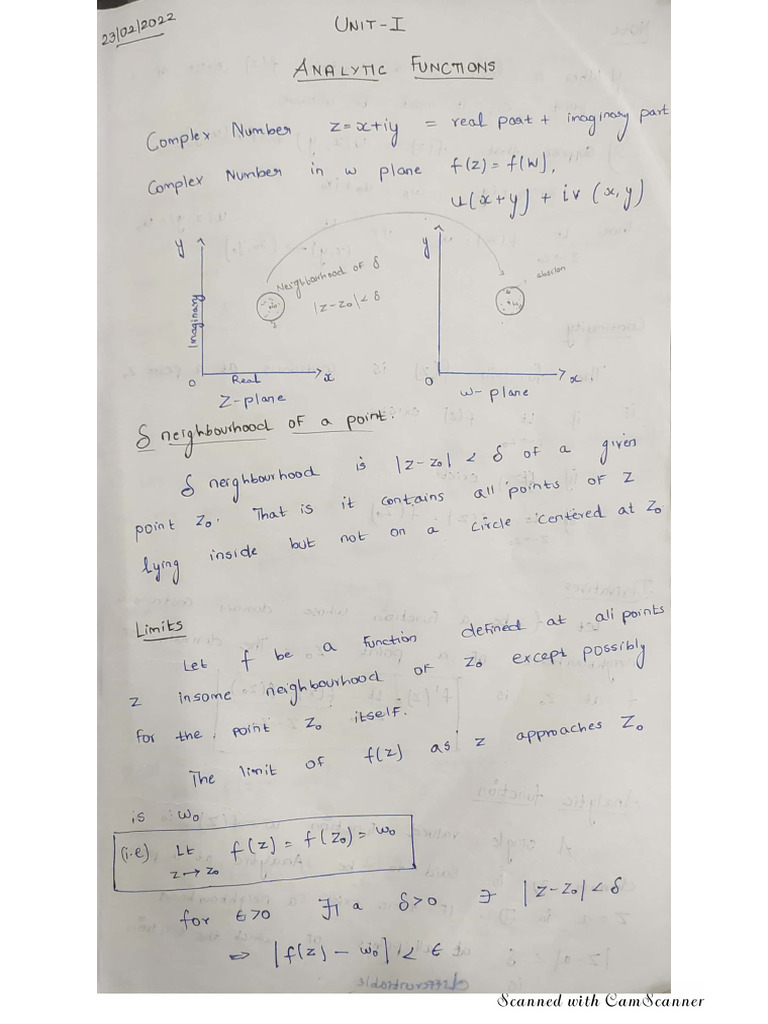 23/02/2022
UNIT-I
ANALYTIC FUNCTIONS
Complex Number z=x+iy = real paat + imaginary part
Complex Number in w plane f(z) = f(w),
u(x+y) + iv (x,y)
y
Imaginary
Neighbourhood of δ
|z-z₀| < δ
0
Real
x
Z-plane
y
0
x.
w-plane
δ neighbourhood of a point.
δ nerghbourhood is |z-z₀| < δ of a given
point Z₀. That is it contains all points of Z
lying inside but not on a circle centered at Z₀
Limits
Let f be a function defined at all points
z insome neighbourhood of Z₀ except possibly
for the point Z₀ itself.
The limit of f(z) as z approaches Z₀
is w₀
(i.e) Lt f(z) = f(z₀) = w₀
z→z₀
for ϵ>0 ∃ a δ>0 ∋ |z-z₀| < δ
⇒ |f(z) - w₀| < ϵ
Scanned with CamScanner